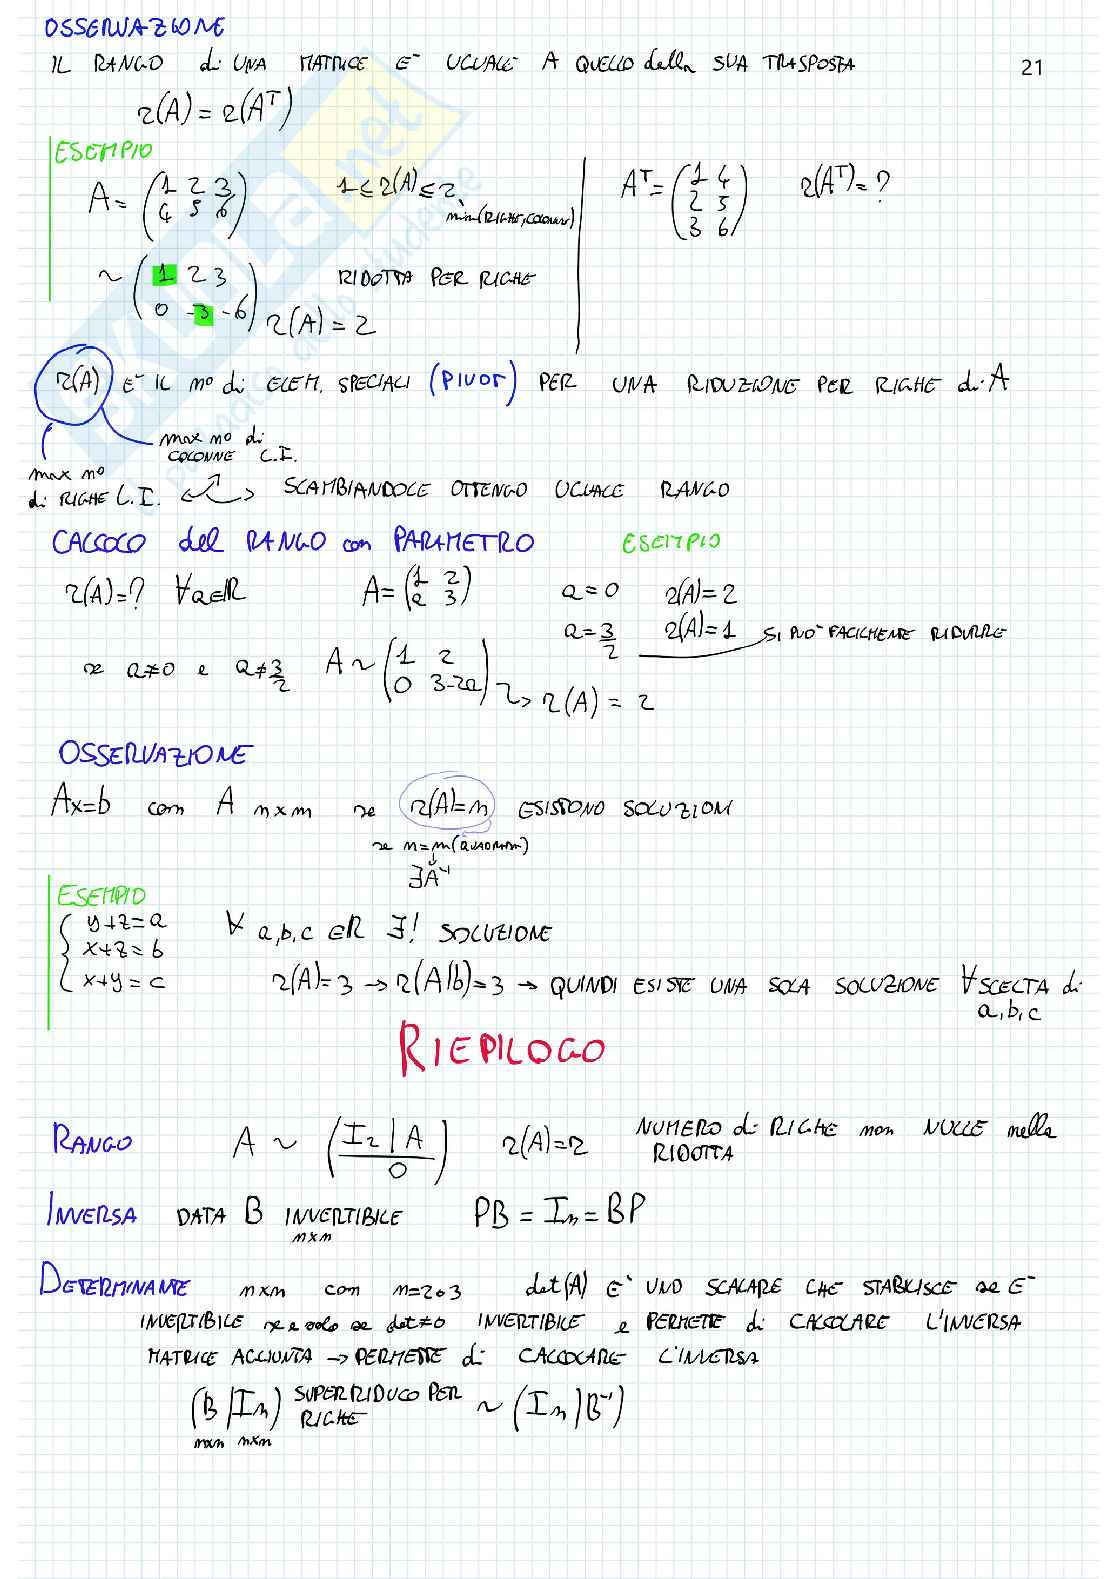 OSSERVAZIONE
IL RANGO di UNA MATRICE E' UGUALE A QUELLO della SUA TRASPOSTA
21
r(A) = r(Aᵀ)
ESEMPIO
A = (1 2 3
4 5 6)
1 ≤ r(A) ≤ 2
min(RIGHE, COLONNE)
Aᵀ = (1 4
2 5
3 6)
r(Aᵀ) = ?
~ (1 2 3
0 -3 -6)
RIDOTTA PER RIGHE
r(A) = 2
r(A) E' IL n° di ELEM. SPECIALI (PIVOT) PER UNA RIDUZIONE PER RIGHE di A
max n° di
COLONNE L.I.
max n°
di RIGHE L.I.
SCAMBIANDOLE OTTENGO UGUALE RANGO
CALCOLO del RANGO con PARAMETRO
ESEMPIO
r(A)=? ∀a∈ℝ
A = (1 2
a 3)
a=0 r(A)=2
a=3/2 r(A)=1 SI PUO' FACILMENTE RIDURRE
se a≠0 e a≠3/2 A ~ (1 2
0 3-2a)
↳ r(A) = 2
OSSERVAZIONE
Ax=b con A n×m se r(A)=n ESISTONO SOLUZIONI
se n=m (QUADRATA)
↓
∃A⁻¹
ESEMPIO
{ y+z=a
x+z=b
x+y=c
∀ a,b,c ∈ℝ ∃! SOLUZIONE
r(A)=3 → r(A|b)=3 → QUINDI ESISTE UNA SOLA SOLUZIONE ∀ SCELTA di
a,b,c
RIEPILOGO
RANGO A ~ (Ir | A
0) r(A)=r
NUMERO di RIGHE non NULLE nella
RIDOTTA
INVERSA DATA B INVERTIBILE PB = In = BP
n×n
DETERMINANTE n×n con n=2 o 3 det(A) E' UNO SCALARE CHE STABILISCE se E'
INVERTIBILE se e solo se det≠0 INVERTIBILE e PERMETTE di CALCOLARE L'INVERSA
MATRICE AGGIUNTA → PERMETTE di CALCOLARE L'INVERSA
(B | In) SUPERRIDUCO PER
RIGHE ~ (In | B⁻¹)
n×n n×n